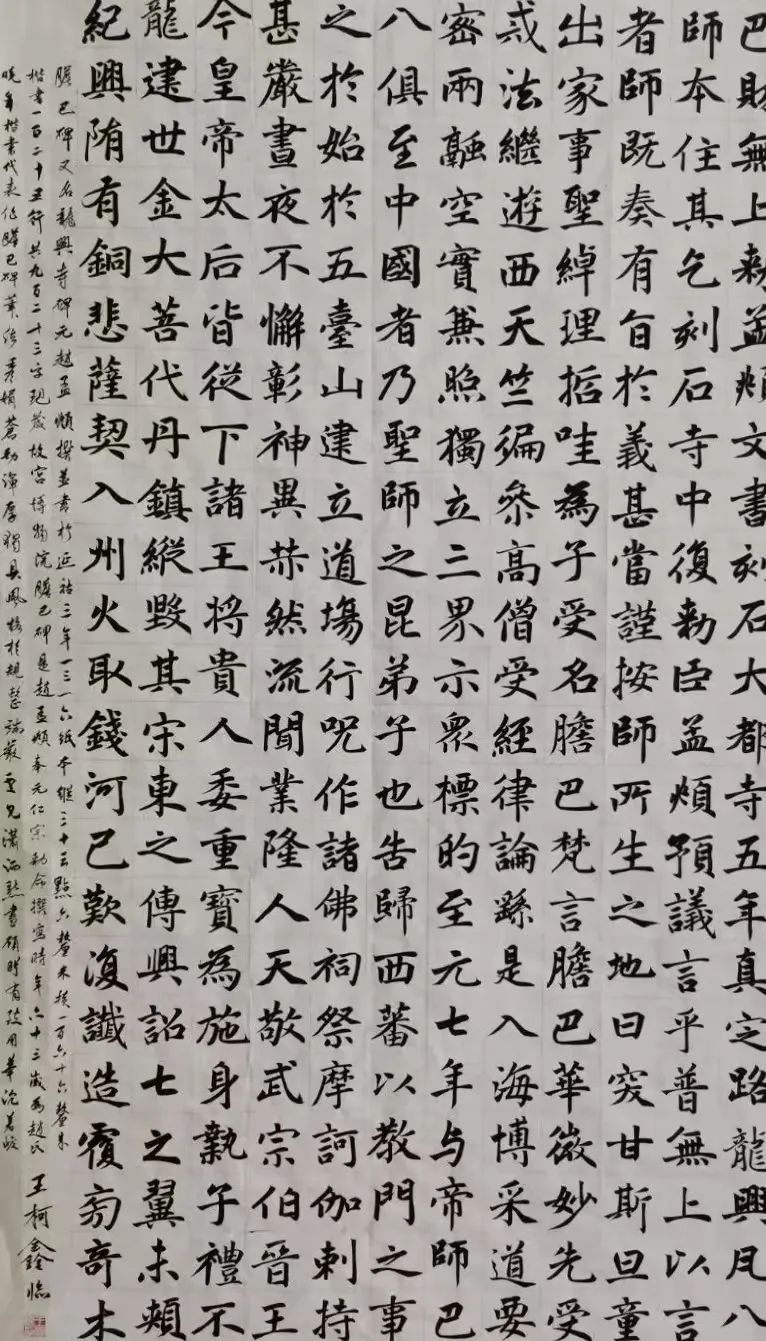 巴財無上勑孟頫文書刻石大都寺五年真定路龍興凡八
師本住其乞刻石寺中復勑臣孟頫預議言乎普無上以言
者師既奏有旨於義甚當謹按師所生之地曰突甘斯旦童
出家事聖綽理哲哇為子受名膽巴梵言膽巴華微妙先受
戒法繼遊西天竺徧叅高僧受經律論繇是入海博采道要
密兩融空實兼照獨立三界示衆標的至元七年与帝師巴
八俱至中國者乃聖師之昆弟子也告歸西蕃以教門之事
之於始於五臺山建立道場行呪作諸佛祠祭摩訶伽剌持
甚嚴晝夜不懈彰神異赫然流聞業隆人天敬武宗伯晉王
今皇帝太后皆從下諸王將貴人委重寶為施身執子禮不
龍逮世金大菩代丹鎮縱毀其宋東之傳興詔七之翼未頰
紀興隋有銅悲薩契入州火取錢河已歎復讖造覆奇木
膽巴碑又名龍興寺碑元趙孟頫撰並書於延祐三年一三一六紙本縱三十三點六釐米橫一百六十六釐米
楷書一百二十五行共九百二十三字現藏故宮博物院膽巴碑是趙孟頫奉元仁宗勑命撰寫時年六十三歲為趙氏
晚年楷書代表作膽巴碑筆法秀媚蒼勁渾厚獨具風格於規整端嚴更見瀟洒點畫顧盼有致用筆沉着
王柯鑫臨